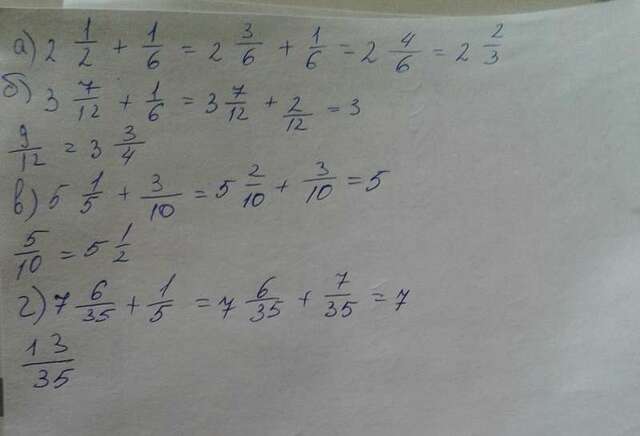 а) 2 1/2 + 1/6 = 2 3/6 + 1/6 = 2 4/6 = 2 2/3
б) 3 7/12 + 1/6 = 3 7/12 + 2/12 = 3
9/12 = 3 3/4
в) 5 1/5 + 3/10 = 5 2/10 + 3/10 = 5
5/10 = 5 1/2
г) 7 6/35 + 1/5 = 7 6/35 + 7/35 = 7
13/35